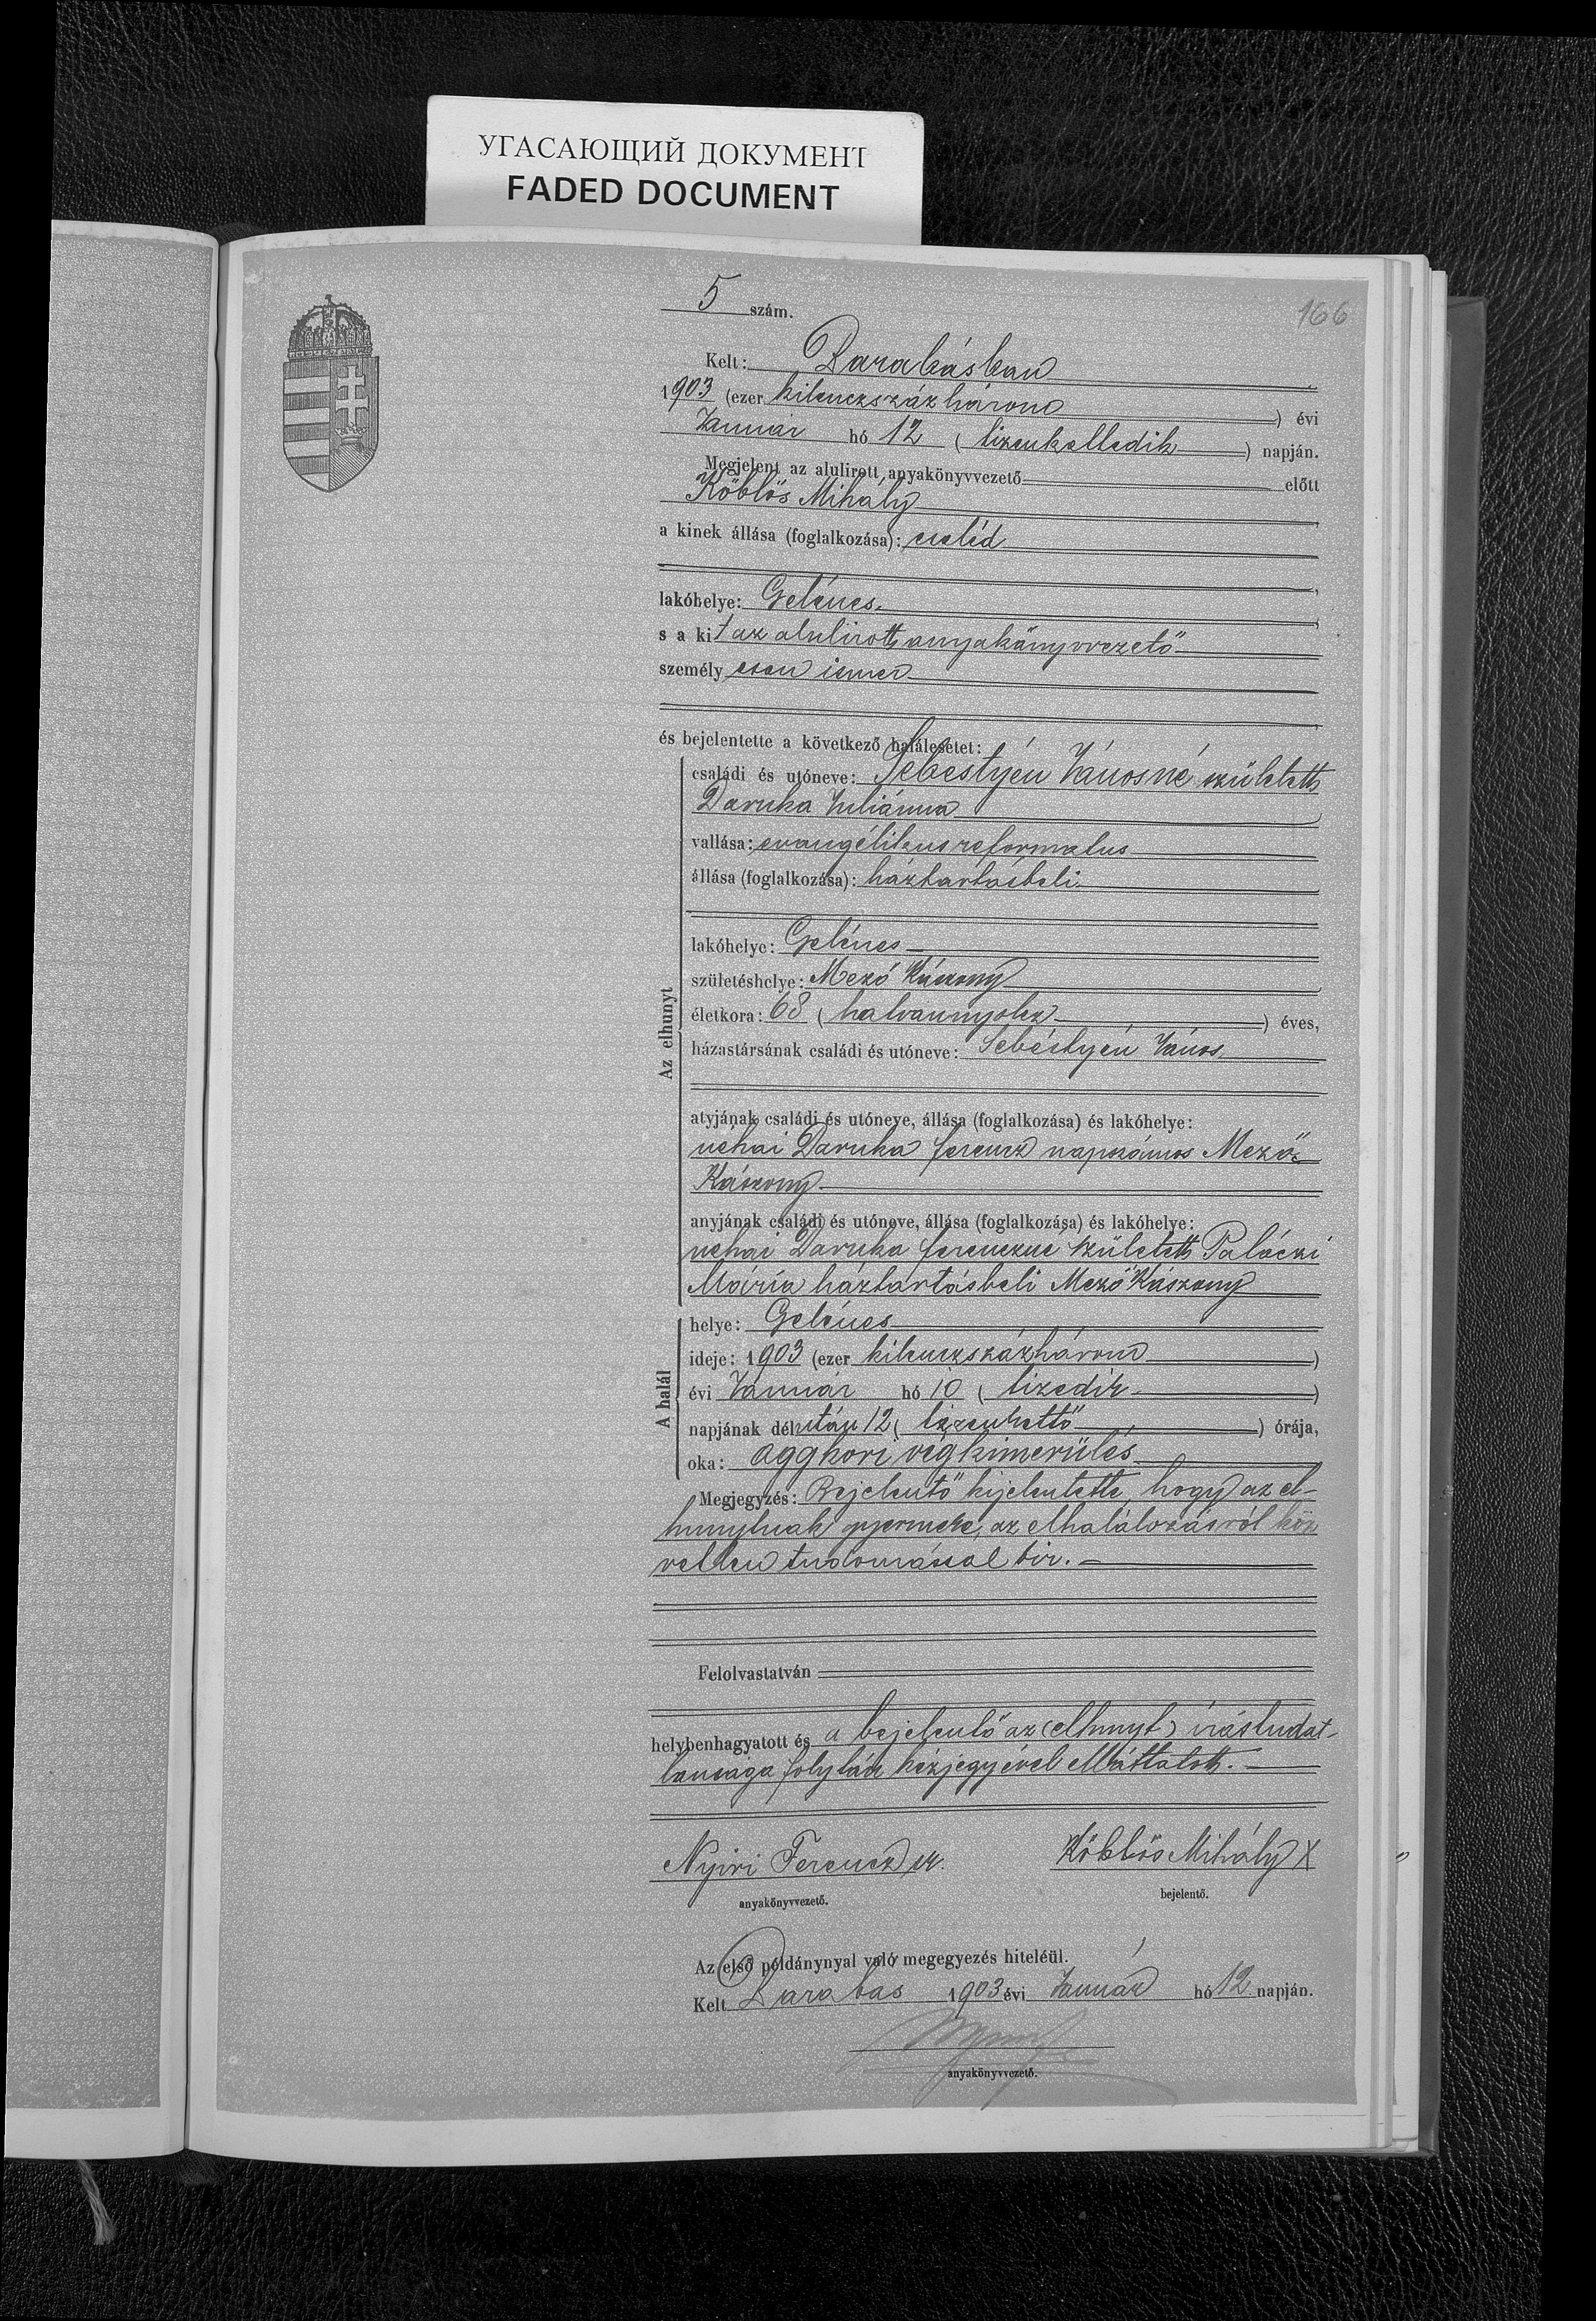 УГАСАЮЩИЙ ДОКУМЕНТ
FADED DOCUMENT
166
5 szám.
Kelt: Darabásban
1903 (ezer kilenczszázhárom) évi
Január hó 12 (tizenkettedik) napján.
Megjelent az alulirott anyakönyvvezető előtt
Köblös Mihály,
a kinek állása (foglalkozása): cseléd
lakóhelye: Gelénes,
s a kit az alulirott anyakönyvvezető
személyesen ismer
és bejelentette a következő halálesetet:
Az elhunyt
családi és utóneve: Sebestyén Jánosné született
Daruka Juliánna
vallása: evangélikus reformatus
állása (foglalkozása): háztartásbeli
lakóhelye: Gelénes
születéshelye: Mező Kászony
életkora: 68 (hatvannyolcz) éves,
házastársának családi és utóneve: Sebéstyén János
atyjának családi és utóneve, állása (foglalkozása) és lakóhelye:
néhai Daruka Ferencz napszámos Mező-
Kászony
anyjának családi és utóneve, állása (foglalkozása) és lakóhelye:
néhai Daruka Ferenczné született Palóczi
Mária háztartásbeli Mező Kászony
A halál
helye: Gelénes
ideje: 1903 (ezer kilenczszázhárom)
évi Január hó 10 (tizedik)
napjának délután 12 (tizenkettő) órája,
oka: aggkori végkimerülés
Megjegyzés: Bejelentő kijelentette, hogy az el-
hunytnak gyermeke, az elhalálozásról köz
vetlen tudomással bir.
Felolvastatván
helybenhagyatott és a bejelentő az (elhunyt) irástudat-
lansága folytán kézjegyével elláttatott.
Nyiri Ferencz sk.
Köblös Mihály X
anyakönyvvezető.
bejelentő.
Az első példánynyal való megegyezés hiteléül.
Kelt Darabás 1903 évi Január hó 12 napján.
anyakönyvvezető.